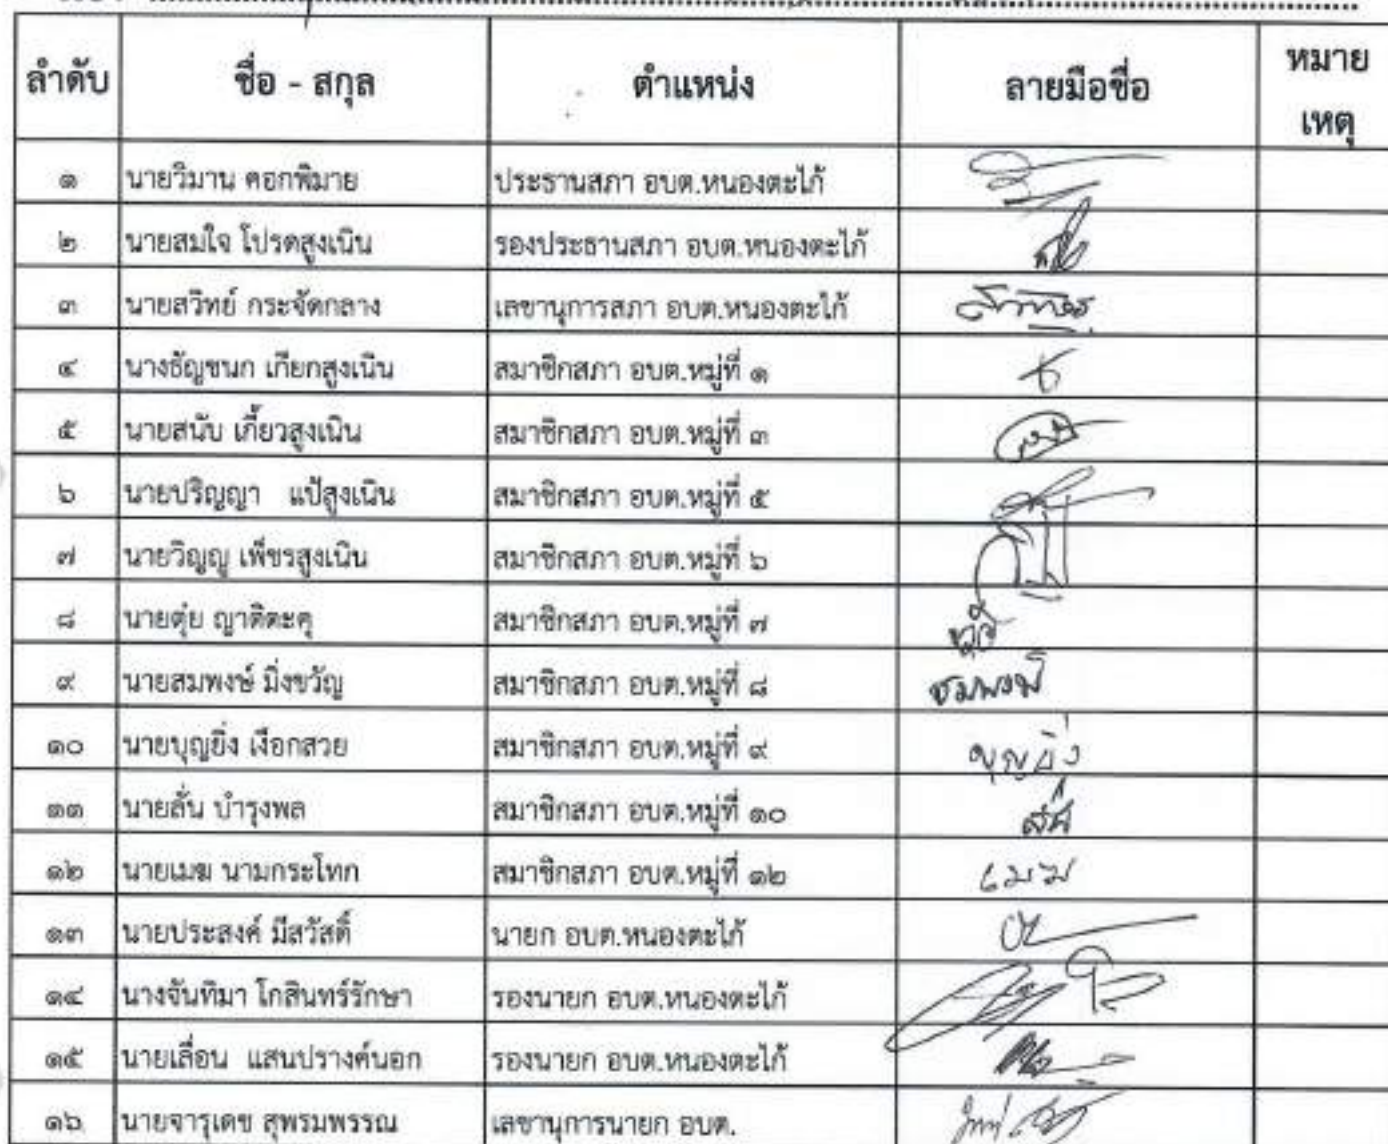 ลำดับ ชื่อ - สกุล ตำแหน่ง ลายมือชื่อ หมาย
เหตุ
๑ นายวิมาน ศอกพิมาย ประธานสภา อบต.หนองตะไก้
๒ นายสมใจ โปรดสูงเนิน รองประธานสภา อบต.หนองตะไก้
๓ นายสวิทย์ กระจัดกลาง เลขานุการสภา อบต.หนองตะไก้
๔ นางธัญชนก เกียกสูงเนิน สมาชิกสภา อบต.หมู่ที่ ๑
๕ นายสนับ เกี้ยวสูงเนิน สมาชิกสภา อบต.หมู่ที่ ๓
๖ นายปริญญา แป้สูงเนิน สมาชิกสภา อบต.หมู่ที่ ๕
๗ นายวิญญู เพ็ชรสูงเนิน สมาชิกสภา อบต.หมู่ที่ ๖
๘ นายตุ๋ย ญาติตะคุ สมาชิกสภา อบต.หมู่ที่ ๗
๙ นายสมพงษ์ มิ่งขวัญ สมาชิกสภา อบต.หมู่ที่ ๘ สมพงษ์
๑๐ นายบุญยิ่ง เงือกสวย สมาชิกสภา อบต.หมู่ที่ ๙ บุญยิ่ง
๑๑ นายลั่น บำรุงพล สมาชิกสภา อบต.หมู่ที่ ๑๐
๑๒ นายเมฆ นามกระโทก สมาชิกสภา อบต.หมู่ที่ ๑๒ เมฆ
๑๓ นายประสงค์ มีสวัสดิ์ นายก อบต.หนองตะไก้
๑๔ นางจันทิมา โกสินทร์รักษา รองนายก อบต.หนองตะไก้
๑๕ นายเลื่อน แสนปรางค์นอก รองนายก อบต.หนองตะไก้
๑๖ นายจารุเดช สุพรมพรรณ เลขานุการนายก อบต.